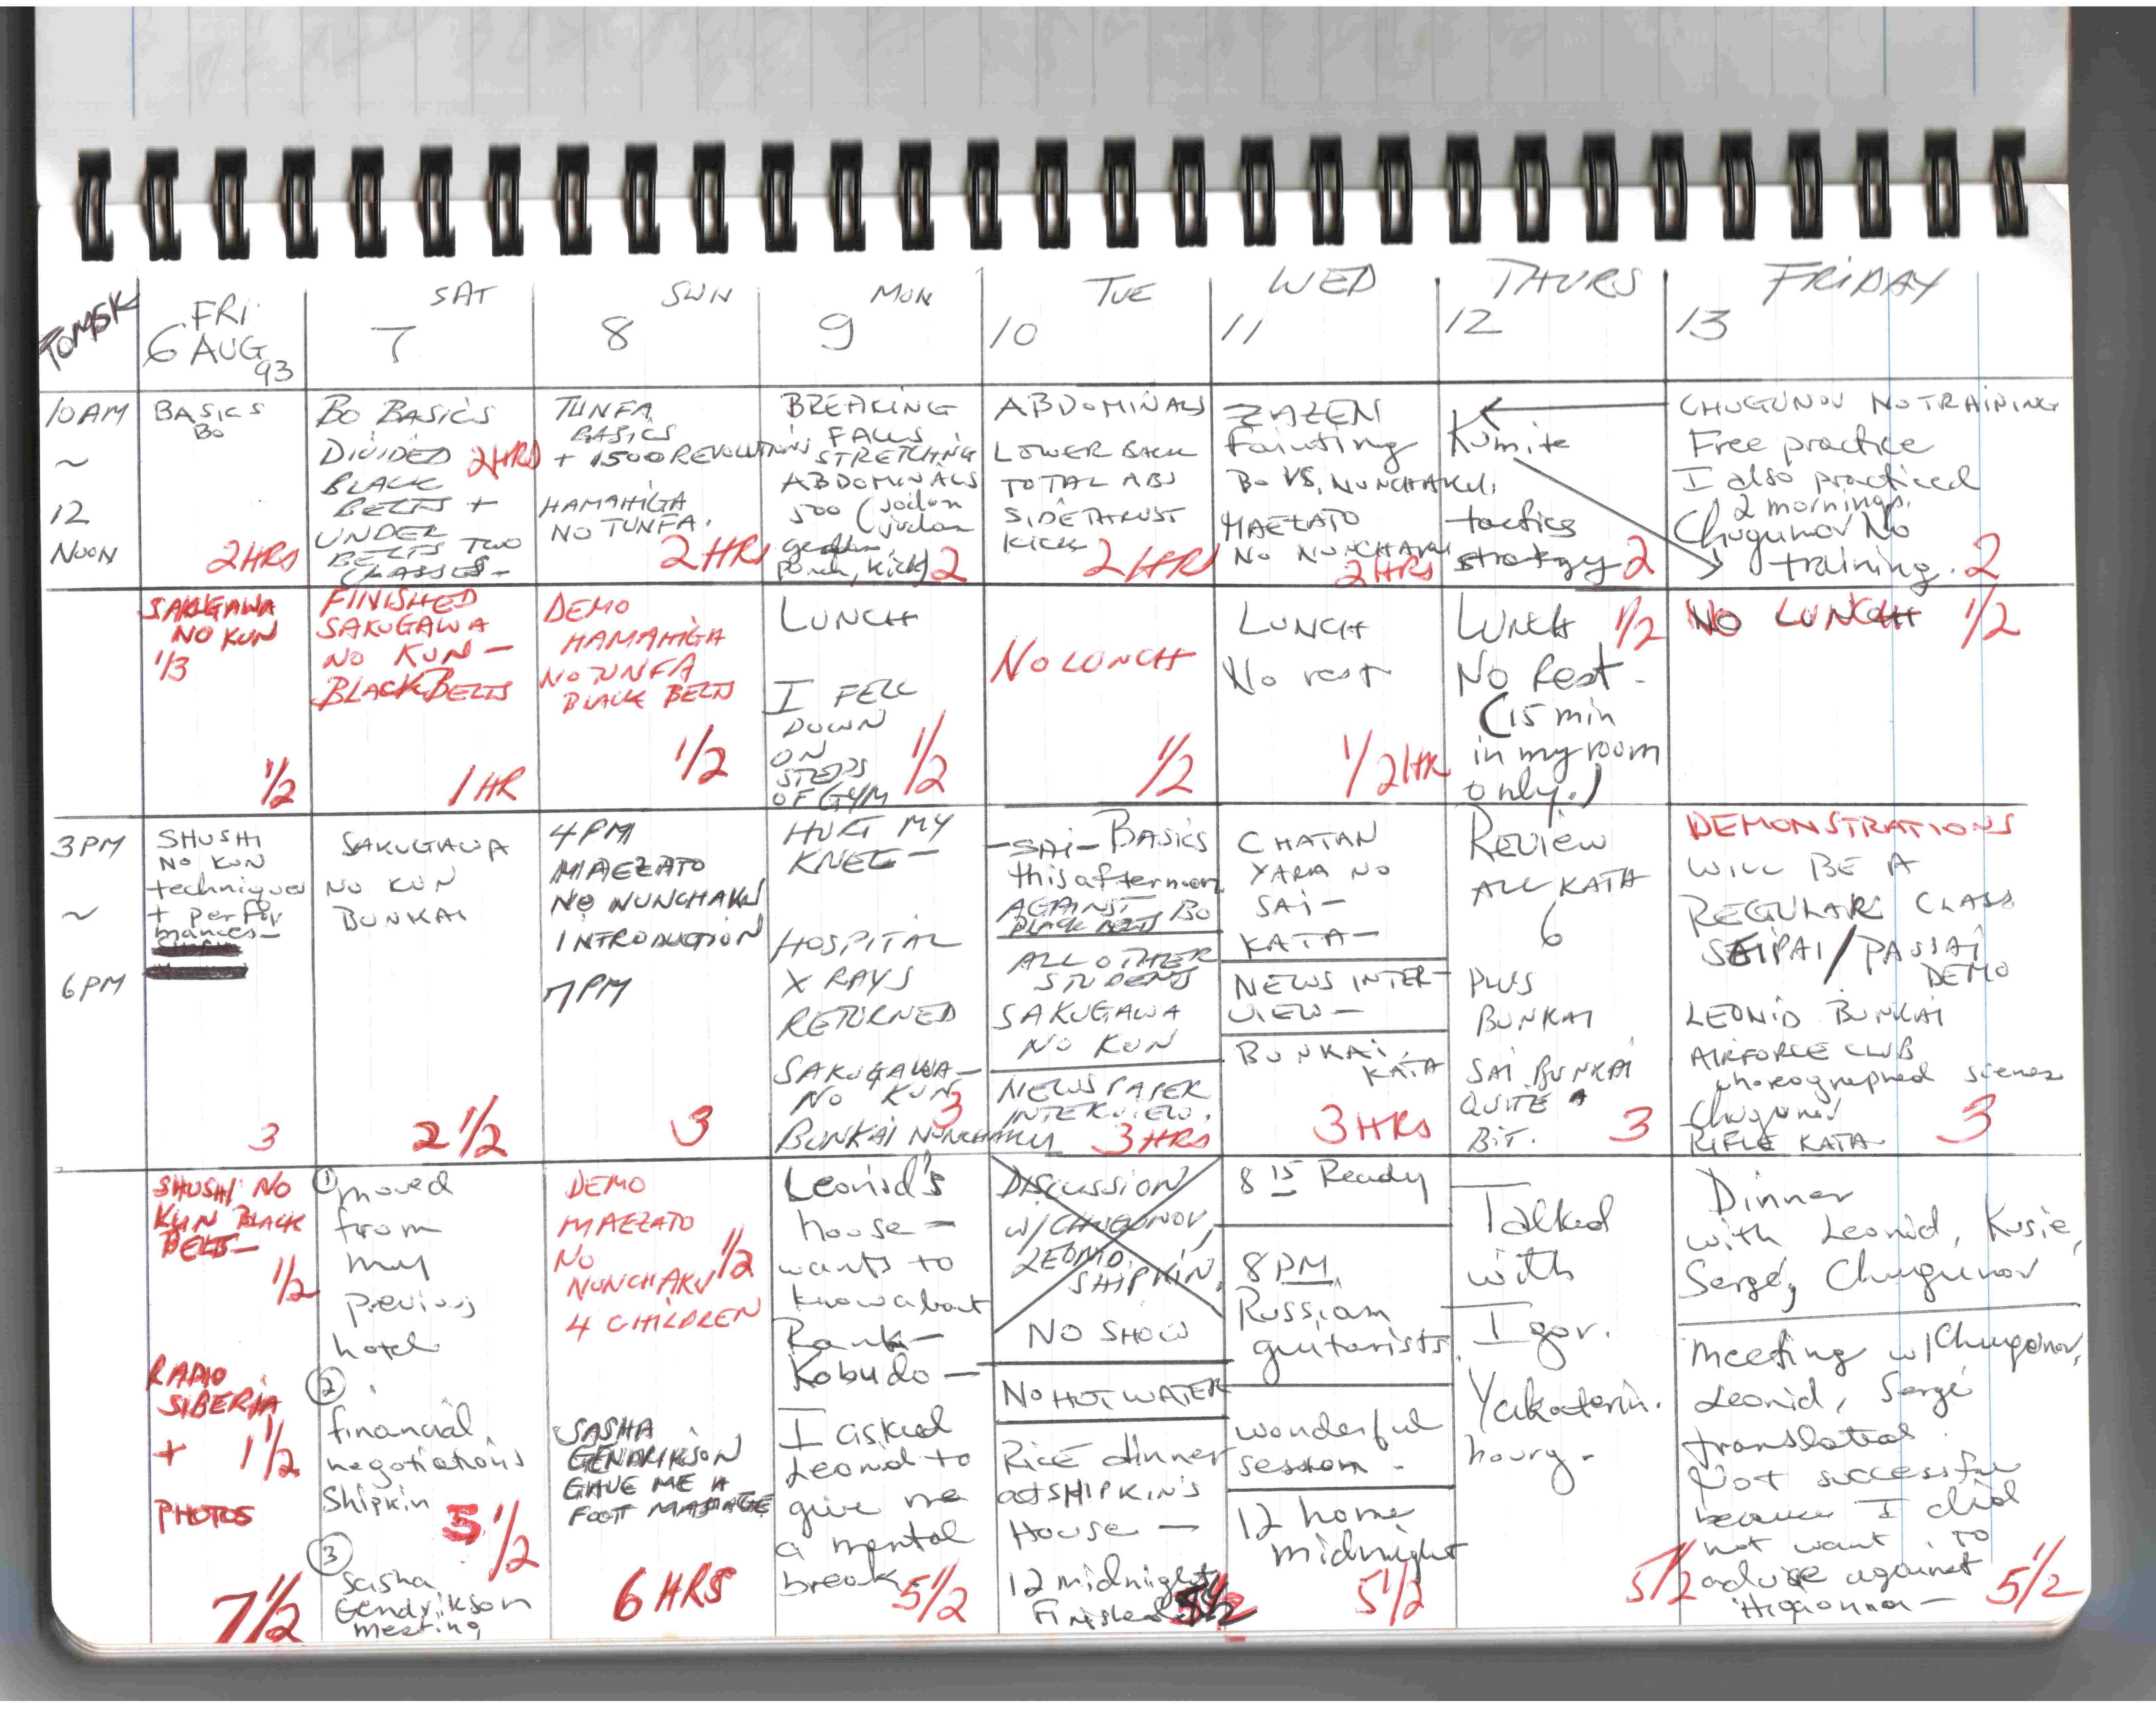 TOMSK
FRI
6 AUG
93
SAT
7
SUN
8
MON
9
TUE
10
WED
11
THURS
12
FRIDAY
13
10AM
~
12
NOON
BASICS
BO
2HRS
BO BASICS
DIVIDED 2HRS
BLACK
BELTS +
UNDER
BELTS TWO
CLASSES-
TUNFA
BASICS
+ 1500 REVOLUTIONS
HAMAHIGA
NO TUNFA.
2HRS
BREAKING
FALLS
STRETCHING
ABDOMINALS
500 (jodan
judan
punch, kick) 2
ABDOMINALS
LOWER BACK
TOTAL ABS
SIDETHRUST
KICK
2HRS
ZAZEN
fainting
BO VS. NUNCHAKU.
MAEZATO
NO NUNCHAKU
2HRS
Kumite
tactics
strategy 2
CHUGUNOV NO TRAINING
Free practice
I also practiced
2 mornings.
Chugunov No
training. 2
SAKUGAWA
NO KUN
1/3
1/2
FINISHED
SAKUGAWA
NO KUN -
BLACK BELTS
1 HR
DEMO
HAMAHIGA
NO TUNFA
BLACK BELTS
1/2
LUNCH
I FELL
DOWN
ON
STEPS
OF GYM
1/2
NO LUNCH
1/2
LUNCH
No rest
1/2 HR
LUNCH 1/2
No Rest -
(15 min
in my room
only.)
NO LUNCH 1/2
3PM
~
6PM
SHUSHI
NO KUN
techniques
+ perfor
mances-
3
SAKUGAWA
NO KUN
BUNKAI
2 1/2
4PM
MAEZATO
NO NUNCHAKU
INTRODUCTION
7PM
3
HURT MY
KNEE -
HOSPITAL
X RAYS
RETURNED
SAKUGAWA-
NO KUN
3
BUNKAI NUNCHAKU
-SAI- BASICS
this afternoon
AGAINST BO
BLACK BELTS
ALL OTHER
STUDENTS
SAKUGAWA
NO KUN
NEWSPAPER
INTERVIEW.
3HRS
CHATAN
YARA NO
SAI-
KATA-
NEWS INTER-
VIEW-
BUNKAI,
KATA
3HRS
REVIEW
ALL KATA
6
PLUS
BUNKAI
SAI BUNKAI
QUITE A
BIT. 3
DEMONSTRATIONS
WILL BE A
REGULAR CLASS
SEIPAI/PASSAI
DEMO
LEONID BUNKAI
AIRFORCE CLUB
choreographed scenes
Chugunov
RIFLE KATA- 3
SHUSHI NO
KUN BLACK
BELTS-
1/2
RADIO
SIBERIA
+ 1 1/2
PHOTOS
7 1/2
① moved
from
my
previous
hotel
②
financial
negotiations
Shipkin
5 1/2
③
Sasha
Gendrikson
meeting
DEMO
MAEZATO
NO
NUNCHAKU 1/2
4 CHILDREN
SASHA
GENDRIKSON
GAVE ME A
FOOT MASSAGE
6 HRS
Leonid's
house -
wants to
know about
Rank-
Kobudo-
I asked
Leonid to
give me
a mental
break. 5 1/2
DISCUSSION
W/ CHUGUNOV,
LEONID,
SHIPKIN.
NO SHOW
NO HOT WATER
Rice dinner
at SHIPKIN'S
House -
12 midnight
Finished 5 1/2
8 15 Ready
8 PM
Russian
guitarists.
wonderful
session -
12 home
midnight
5 1/2
Talked
with
Igor.
Yakaterin.
bourg -
5 1/2
Dinner
with Leonid, Kusie,
Sergé, Chugunov
meeting w/ Chugonov,
Leonid, Sergé
translated.
Not successful
because I did
not want to
advise against
Higaonna - 5 1/2